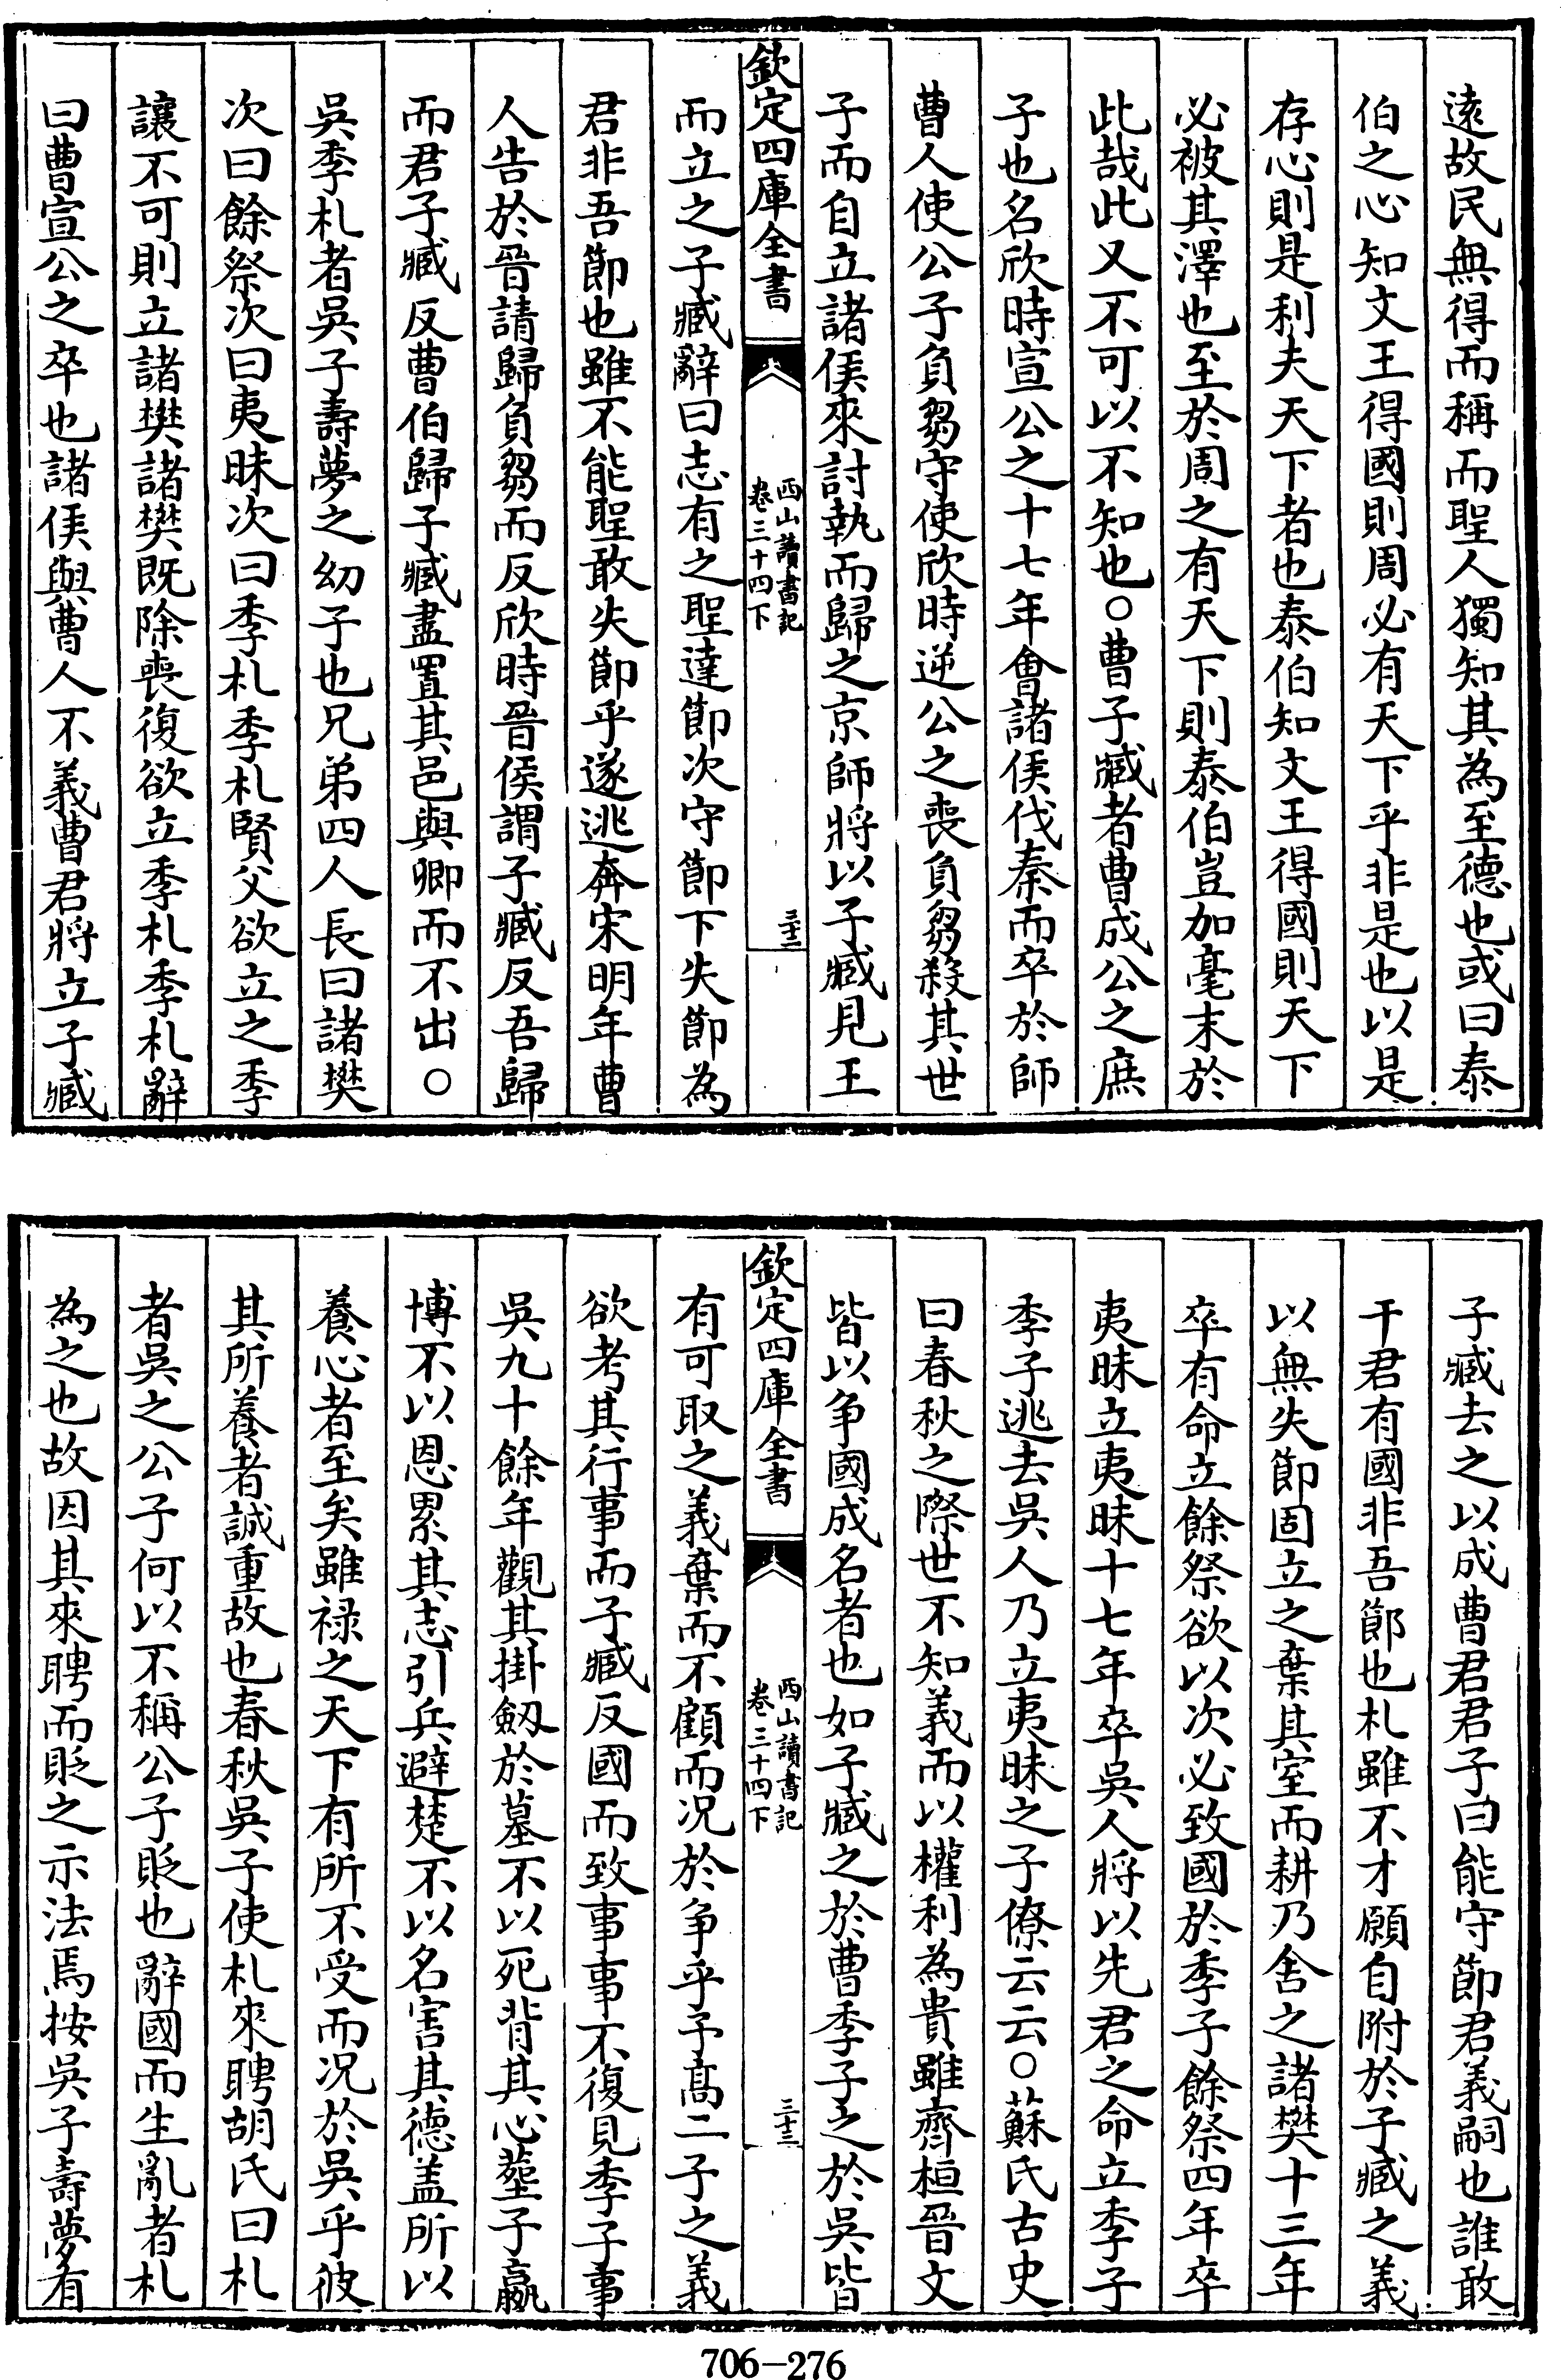 遠故民無得而稱而聖人獨知其為至德也或曰泰
伯之心知文王得國則周必有天下乎非是也以是
存心則是利夫天下者也泰伯知文王得國則天下
必被其澤也至於周之有天下則泰伯豈加毫末於
此哉此又不可以不知也○曹子臧者曹成公之庶
子也名欣時宣公之十七年會諸侯伐秦而卒於師
曹人使公子負芻守使欣時逆公之喪負芻殺其世
子而自立諸侯來討執而歸之京師將以子臧見王
欽定四庫全書
西山讀書記
卷三十四下
三十二
而立之子臧辭曰志有之聖達節次守節下失節為
君非吾節也雖不能聖敢失節乎遂逃奔宋明年曹
人告於晉請歸負芻而反欣時晉侯謂子臧反吾歸
而君子臧反曹伯歸子臧盡置其邑與卿而不出○
吳季札者吳子壽夢之幼子也兄弟四人長曰諸樊
次曰餘祭次曰夷昧次曰季札季札賢父欲立之季
讓不可則立諸樊諸樊既除喪復欲立季札季札辭
曰曹宣公之卒也諸侯與曹人不義曹君將立子臧
子臧去之以成曹君君子曰能守節君義嗣也誰敢
干君有國非吾節也札雖不才願自附於子臧之義
以無失節固立之棄其室而耕乃舍之諸樊十三年
卒有命立餘祭欲以次必致國於季子餘祭四年卒
夷昧立夷昧十七年卒吳人將以先君之命立季子
季子逃去吳人乃立夷昧之子僚云云○蘇氏古史
曰春秋之際世不知義而以權利為貴雖齊桓晉文
皆以争國成名者也如子臧之於曹季子之於吳皆
欽定四庫全書
西山讀書記
卷三十四下
三十三
有可取之義棄而不顧而况於争乎予高二子之義
欲考其行事而子臧反國而致事事不復見季子事
吳九十餘年觀其掛劒於墓不以死背其心塟子嬴
博不以恩累其志引兵避楚不以名害其德盖所以
養心者至矣雖禄之天下有所不受而况於吳乎彼
其所養者誠重故也春秋吳子使札來聘胡氏曰札
者吳之公子何以不稱公子貶也辭國而生亂者札
為之也故因其來聘而貶之示法焉按吳子壽夢有
706-276